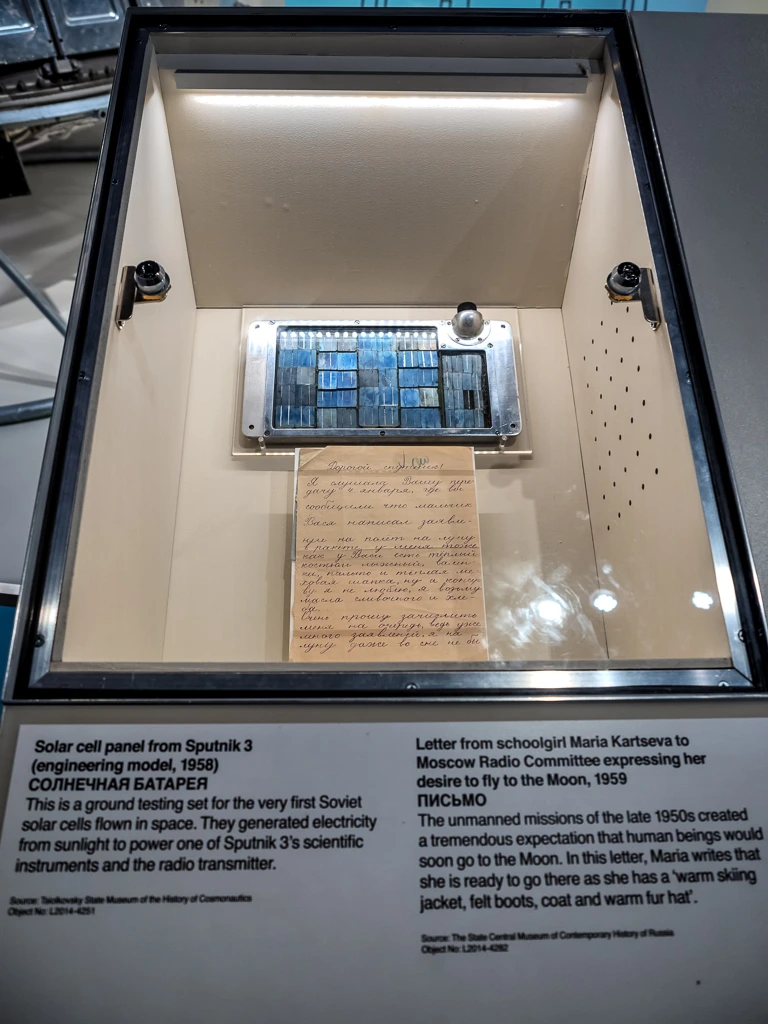 Дорогой спутник!
Я слушала Вашу пере-
дачу 4 января, где вы
сообщили что мальчик
Вася написал заявле-
ние на полет на луну
в ракете. у меня тоже
как у Васи есть теплый
костюм лыжный, вален-
ки, пальто и теплая ме-
ховая шапка, ну а консер
ву я не люблю, я возьму
масла сливочного и хле-
ба.
Очень прошу зачислить
меня на очередь, ведь уже
много заявлений, я на
луну даже во сне не бы
Solar cell panel from Sputnik 3
(engineering model, 1958)
СОЛНЕЧНАЯ БАТАРЕЯ
This is a ground testing set for the very first Soviet
solar cells flown in space. They generated electricity
from sunlight to power one of Sputnik 3's scientific
instruments and the radio transmitter.
Source: Tsiolkovsky State Museum of the History of Cosmonautics
Object No: L2014-4251
Letter from schoolgirl Maria Kartseva to
Moscow Radio Committee expressing her
desire to fly to the Moon, 1959
ПИСЬМО
The unmanned missions of the late 1950s created
a tremendous expectation that human beings would
soon go to the Moon. In this letter, Maria writes that
she is ready to go there as she has a 'warm skiing
jacket, felt boots, coat and warm fur hat'.
Source: The State Central Museum of Contemporary History of Russia
Object No: L2014-4282